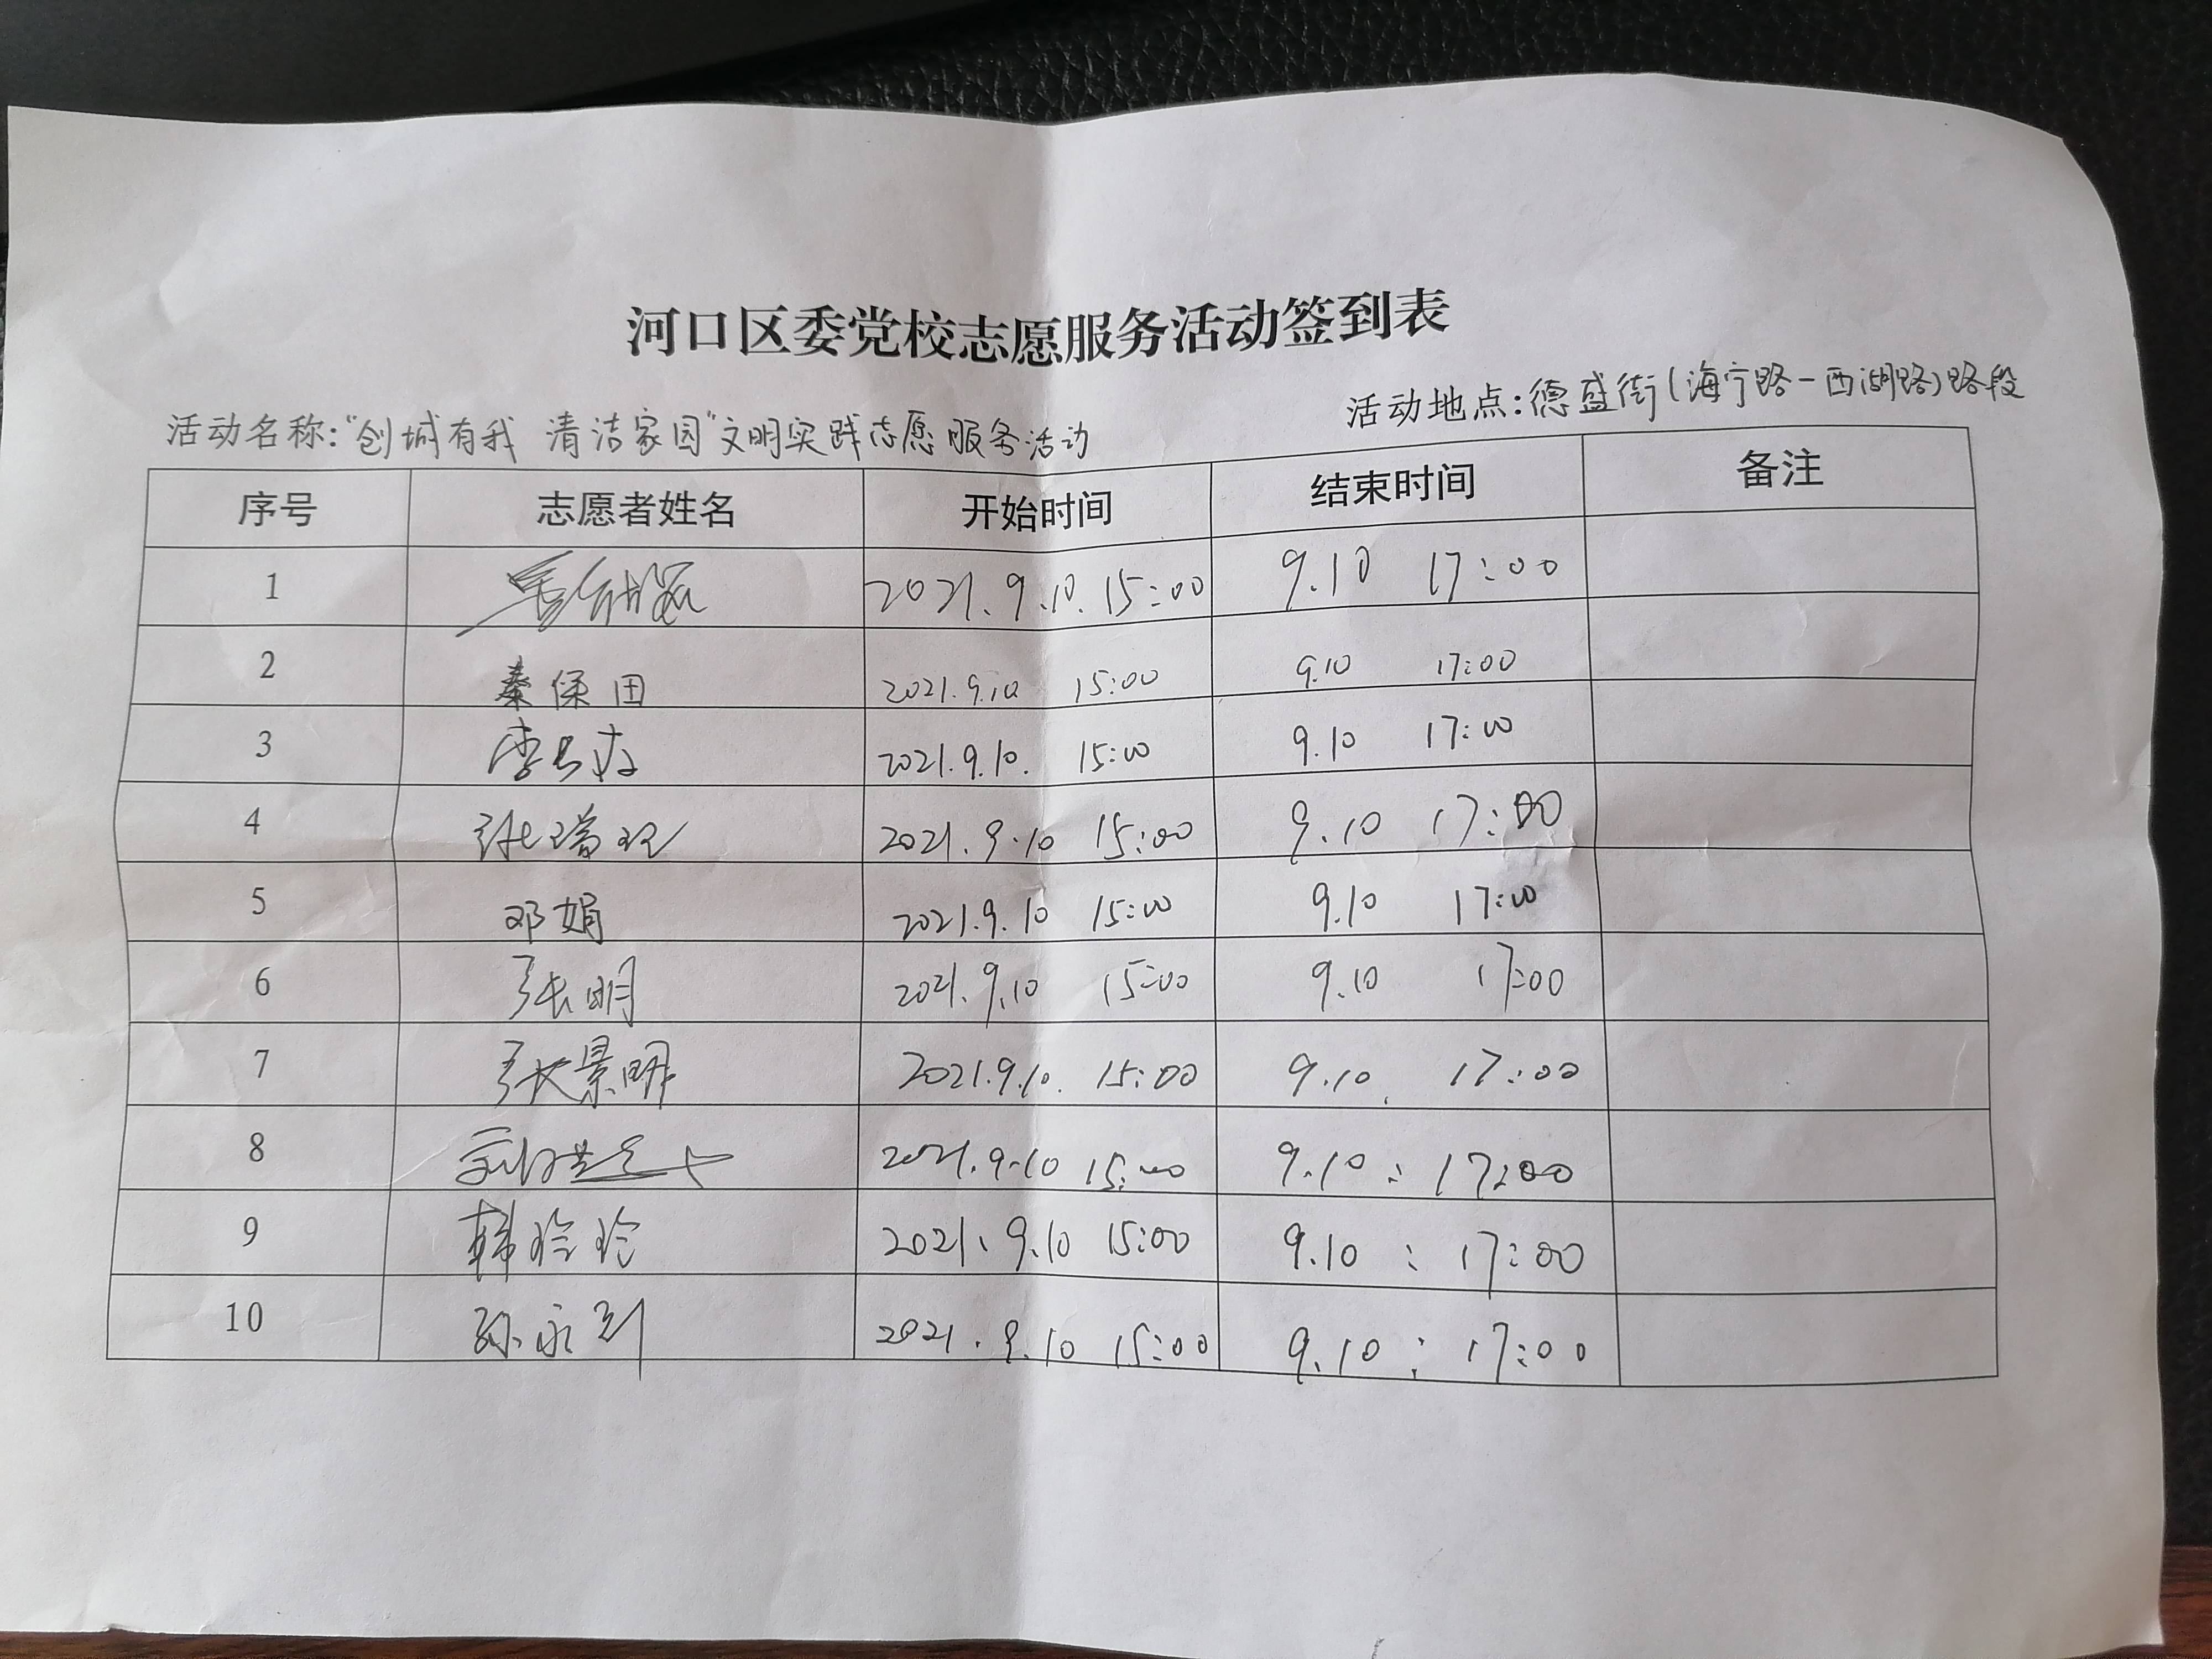 河口区委党校志愿服务活动签到表
活动名称:“创城有我 清洁家园”文明实践志愿服务活动 活动地点:德盛街(海宁路-西湖路)路段
序号 志愿者姓名 开始时间 结束时间 备注
1 2021.9.10. 15:00 9.10 17:00
2 秦保田 2021.9.10 15:00 9.10 17:00
3 李 2021.9.10. 15:00 9.10 17:00
4 张瑞 2021.9.10 15:00 9.10 17:00
5 邓娟 2021.9.10 15:00 9.10 17:00
6 张明 2021.9.10 15:00 9.10 17:00
7 张景明 2021.9.10. 15:00 9.10. 17:00
8 2021.9.10 15:00 9.10 : 17:00
9 韩玲玲 2021.9.10 15:00 9.10 : 17:00
10 孙永利 2021.9.10 15:00 9.10 : 17:00